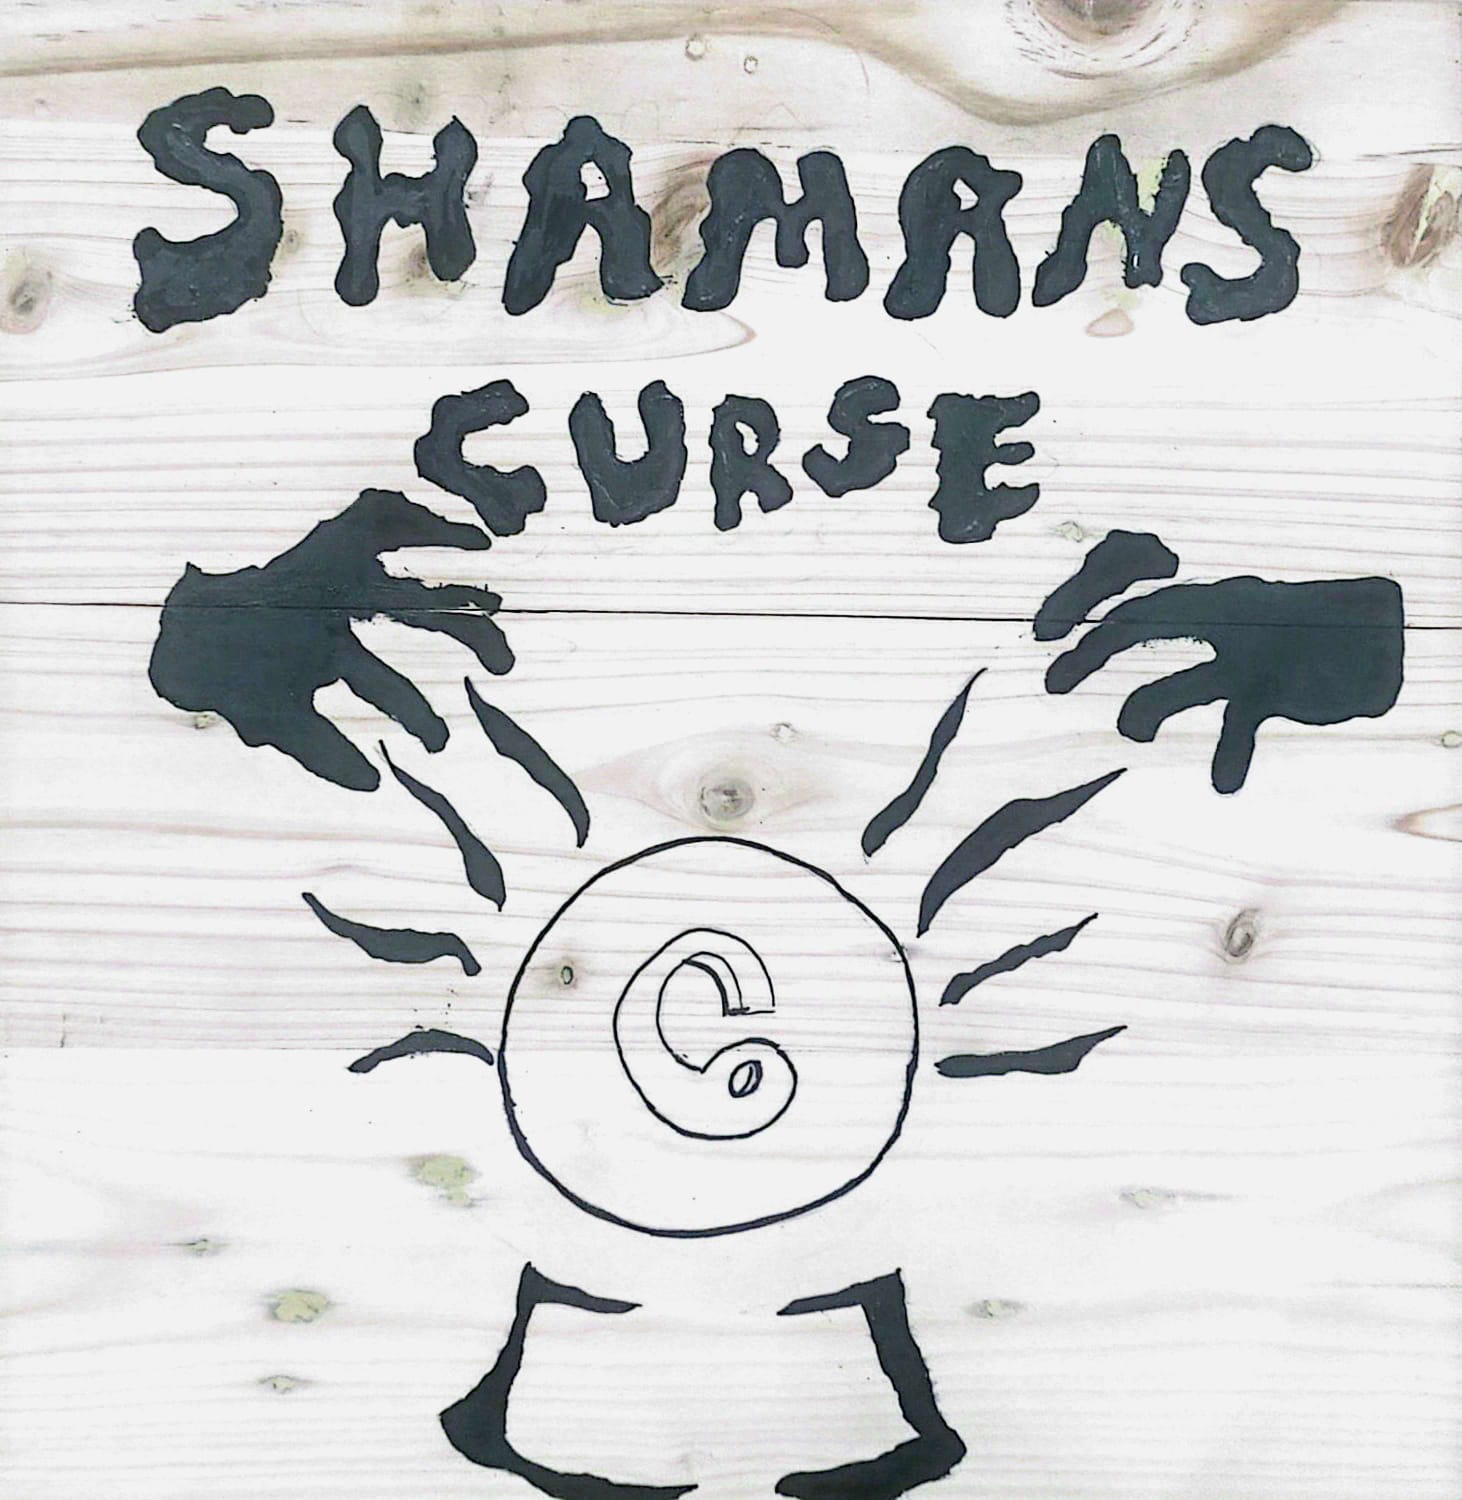 SHAMANS
CURSE